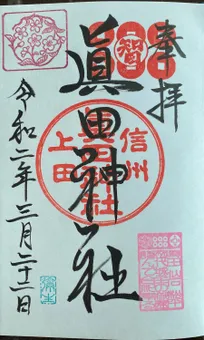 奉拝
智
眞田神社
信州
上田
眞田神社
令和二年三月二十二日